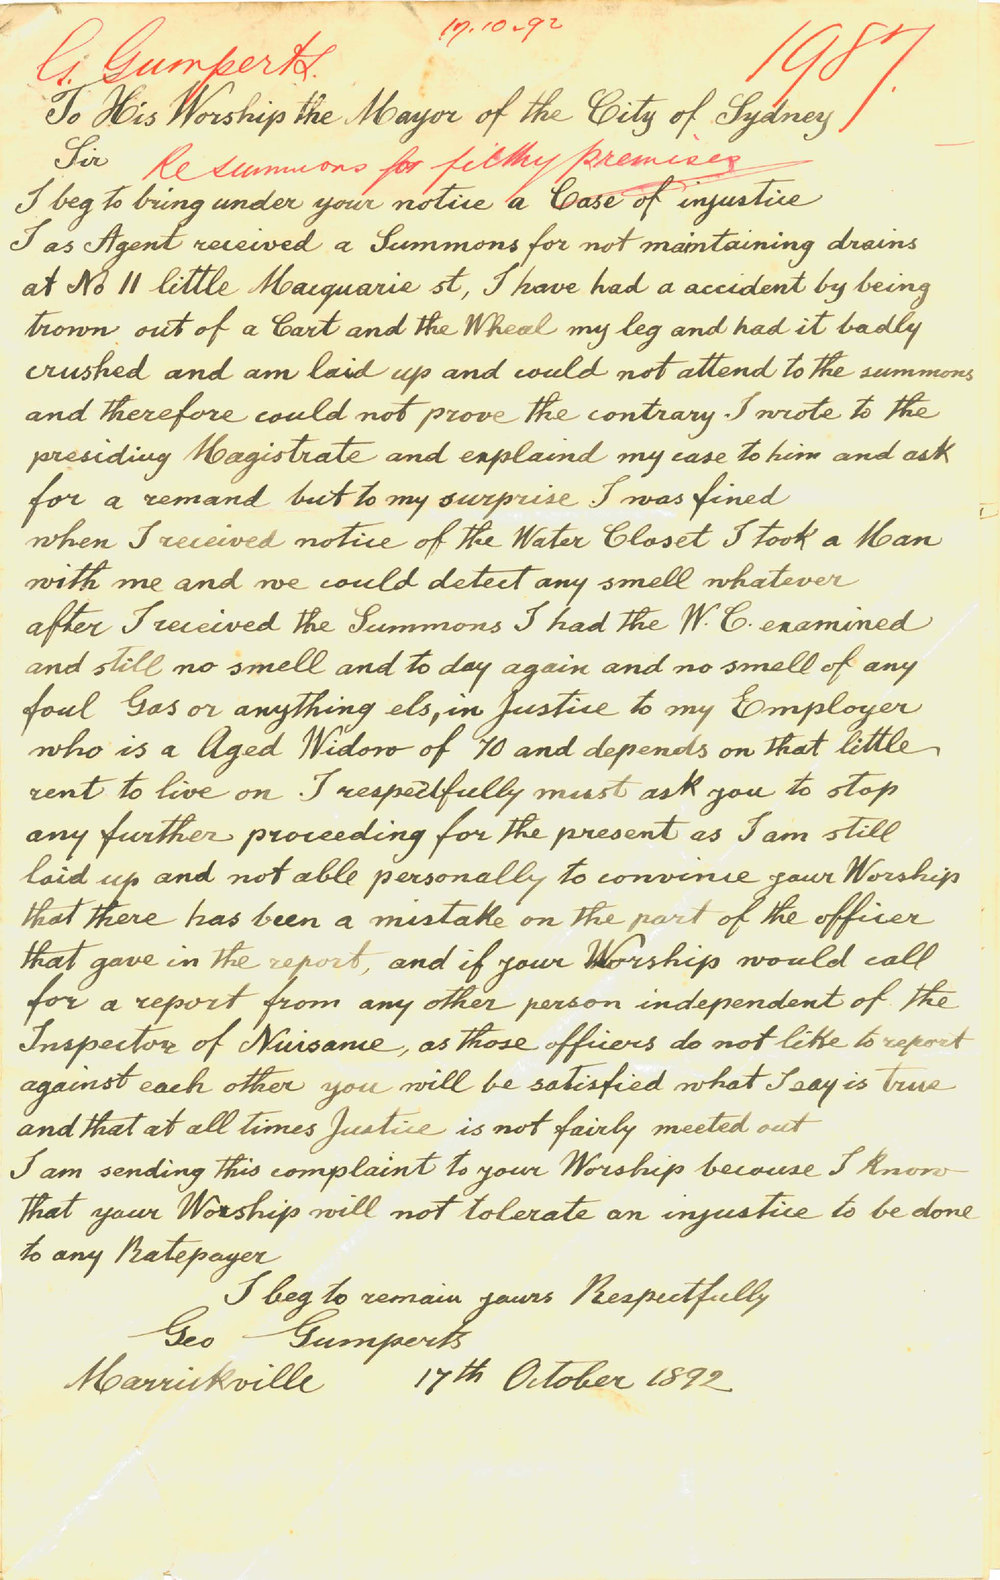 17.10.92
G. Gumperts.
1987.
To His Worship the Mayor of the City of Sydney
Sir
Re summons for filthy premises
I beg to bring under your notice a Case of injustice
I as Agent received a Summons for not maintaining drains
at No 11 little Macquarie st, I have had a accident by being
trown out of a Cart and the Wheal my leg and had it badly
crushed and am laid up and could not attend to the summons
and therefore could not prove the contrary. I wrote to the
presiding Magistrate and explaind my case to him and ask
for a remand but to my surprise I was fined
when I received notice of the Water Closet I took a Man
with me and we could detect any smell whatever
after I received the Summons I had the W. C. examined
and still no smell and to day again and no smell of any
foul Gas or anything els, in Justice to my Employer
who is a Aged Widow of 70 and depends on that little
rent to live on I respectfully must ask you to stop
any further proceeding for the present as I am still
laid up and not able personally to convince your Worship
that there has been a mistake on the part of the officer
that gave in the report, and if your Worship would call
for a report from any other person independent of the
Inspector of Nuisance, as those officers do not like to report
against each other you will be satisfied what I say is true
and that at all times Justice is not fairly meeted out
I am sending this complaint to your Worship because I know
that your Worship will not tolerate an injustice to be done
to any Ratepayer
I beg to remain yours Respectfully
Geo Gumperts
Marrickville 17th October 1892